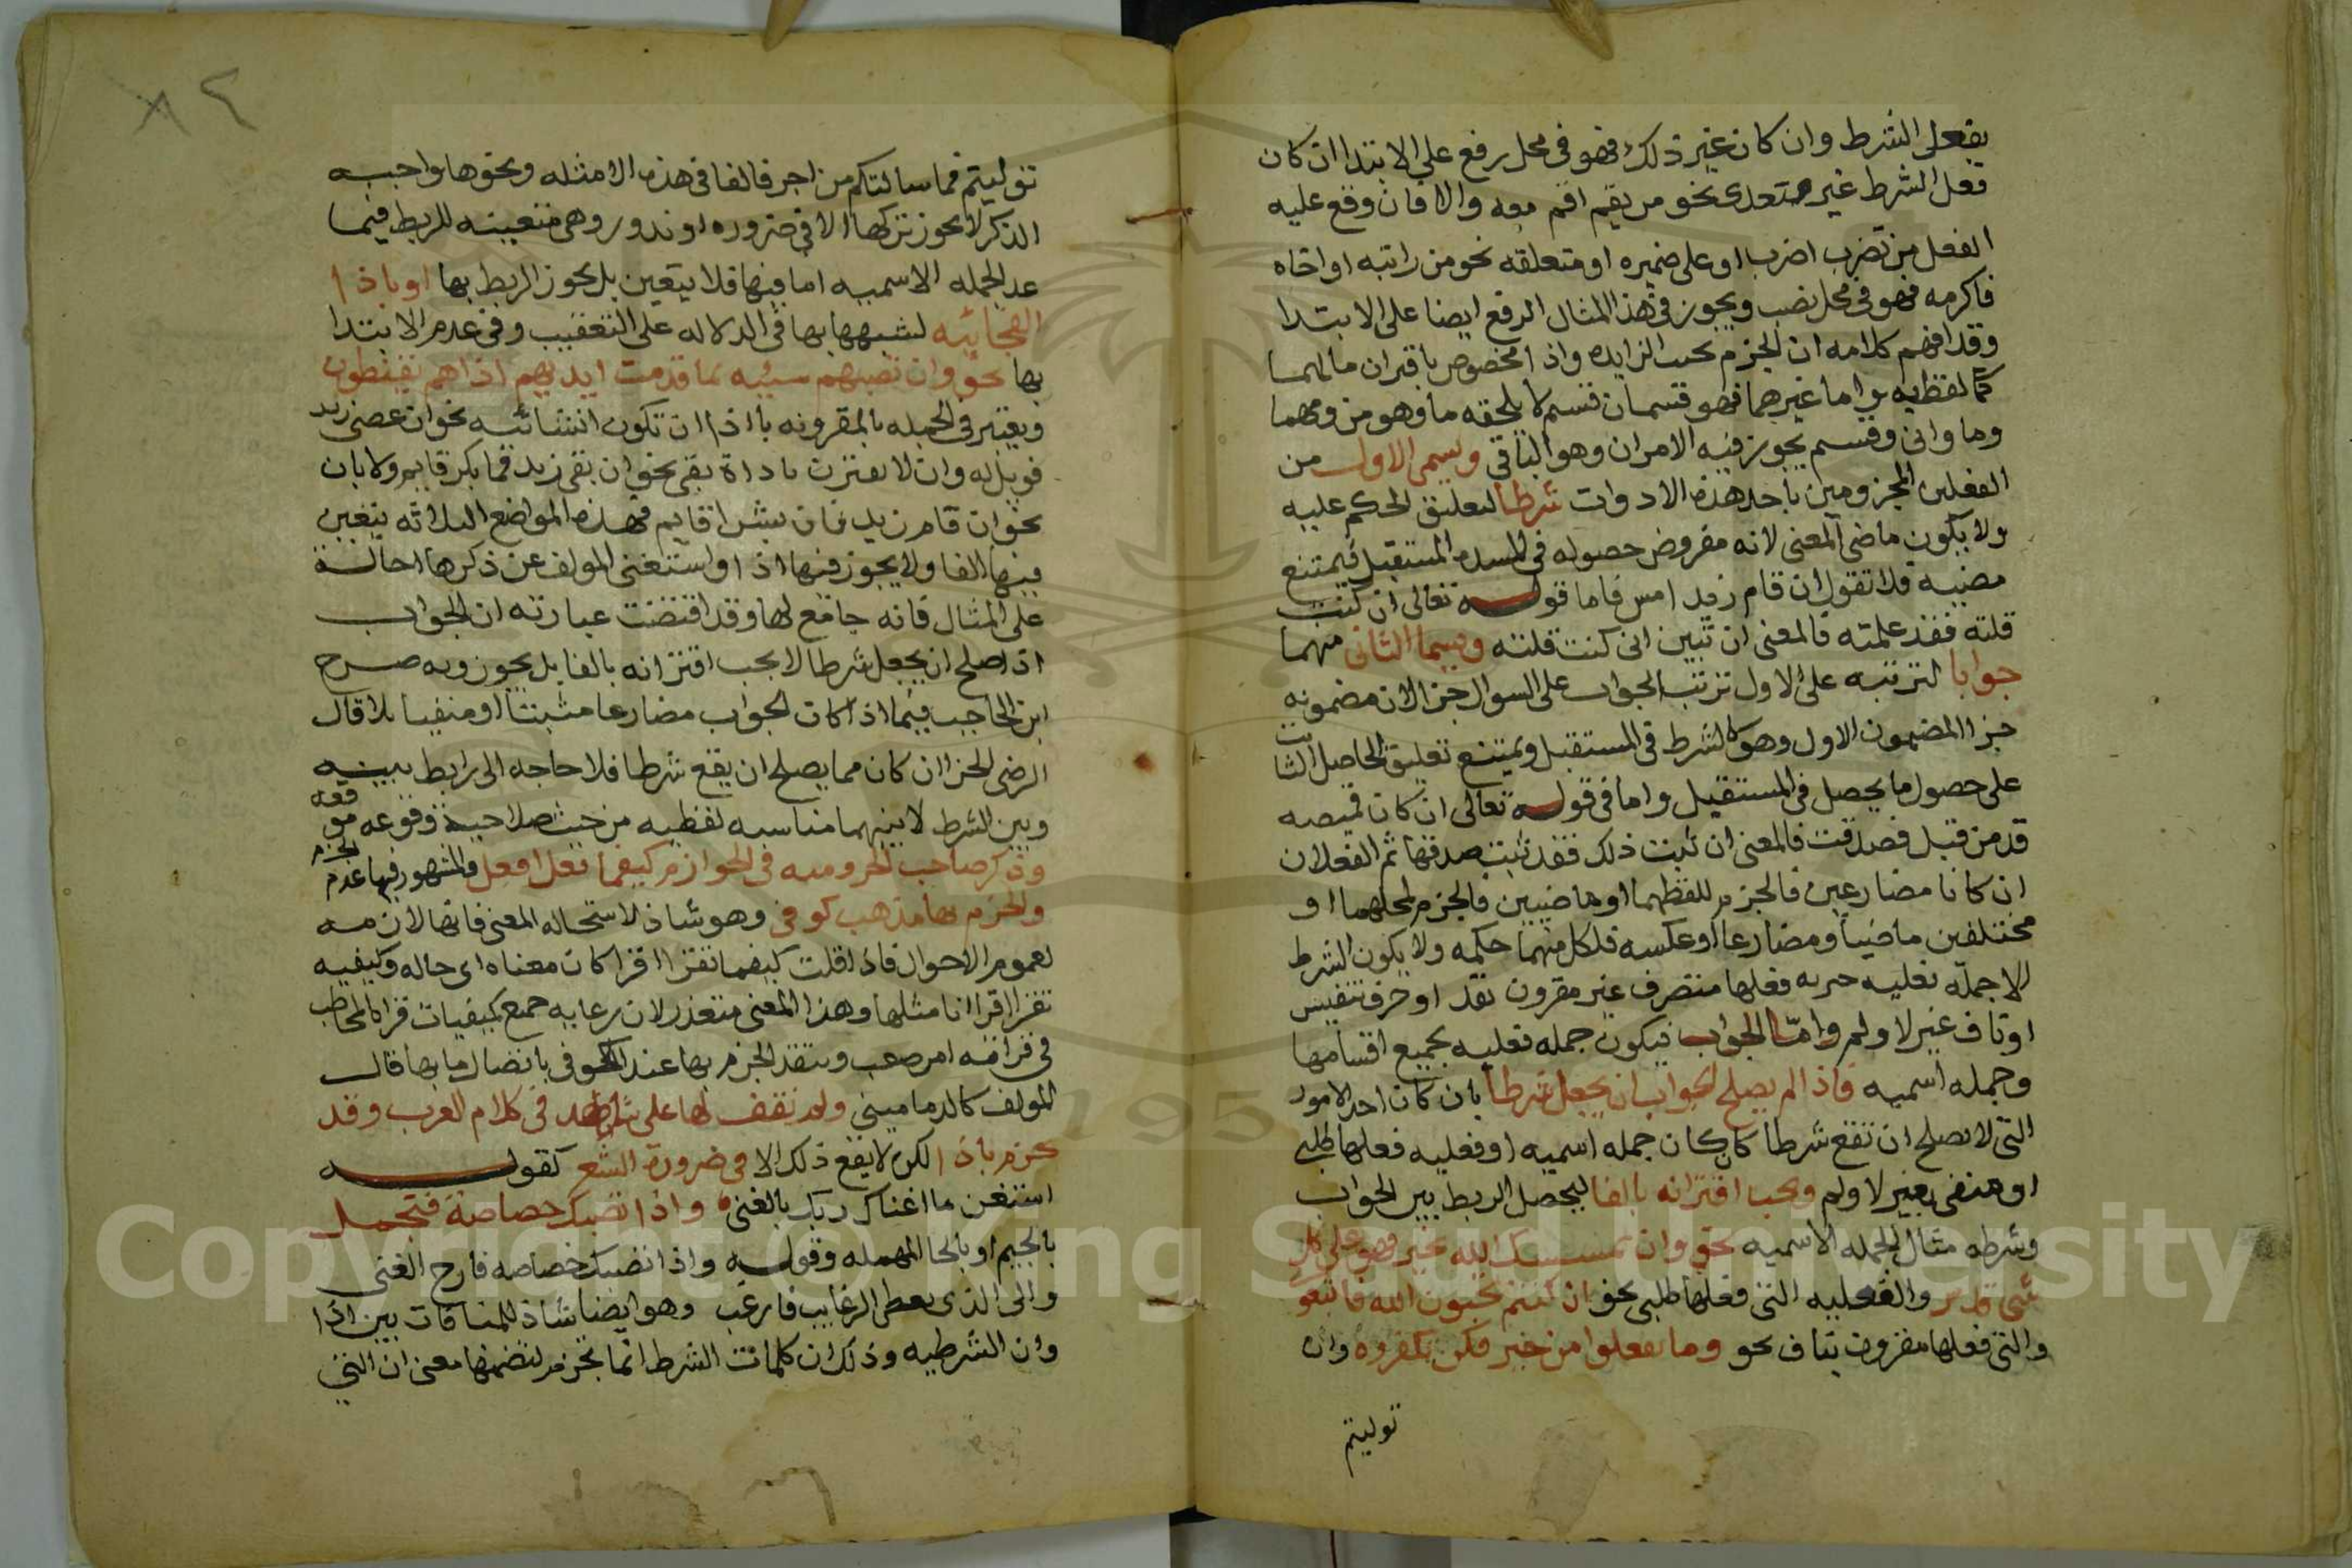 بفعل الشرط وان كان غير ذلك فهو في محل رفع علي الابتدا ان كان
فعل الشرط غير متعدى نحو من يقم اقم معه والا فان وقع عليه
الفعل من تضرب اضرب او على ضميره او متعلقه نحو من رايته او اخاه
فاكرمه فهو في محل نصب ويجوز في هذا المثال الرفع ايضا على الابتدا
وقد افهم كلامه ان الجزم بحيث الزايده واذا مخصوص باقتران ما لهما
كما لفظ به واما غيرهما فهو قسمان قسم لا يلحقه ما وهو من ومهما
وما وانى وقسم يجوز فيه الامران وهو الباقي ويسمى الاول من
الفعلين المجزومين باحد هذه الادوات شرطا لتعليق الحكم عليه
ولا يكون ماضي المعنى لانه مفروض حصوله في المستقبل فيمتنع
مضيه فلا تقول ان قام زيد امس فاما قوله تعالى ان كنت
قلته فقد علمته فالمعنى ان تبين انى كنت قلته ويسما الثانى منهما
جوابا لترتبه على الاول ترتب الجواب على السوال جزا لان مضمونه
جزا المضمون الاول وهو كالشرط في المستقبل ويمتنع تعليق الحاصل الثابت
على حصول ما يحصل في المستقبل واما في قوله تعالى ان كان قميصه
قد من قبل فصدقت فالمعنى ان ثبت ذلك فقد ثبت صدقها ثم الفعلان
ان كانا مضارعين فالجزم للفظهما او ماضيين فالجزم لمحلهما او
مختلفين ماضيا ومضارعا او عكسه فلكل منهما حكمه ولا يكون الشرط
الا جملة فعليه خبريه فعلها متصرف غير مقرون بقد او حرف تنفيس
او ناف غير لا ولم واما الجواب فيكون جمله فعليه بجميع اقسامها
وجمله اسميه فاذا لم يصلح الجواب ان يجعل شرطا بان كان احد الامور
التى لا يصلح ان تقع شرطا كان كان جمله اسميه او فعليه فعلها طلبى
او منفى بغير لا ولم وجب اقترانه بالفا ليحصل الربط بين الجواب
وشرطه مثال الجمله الاسميه نحو وان يمسسك الله بخير فهو على كل
شى قدير والفعليه التى فعلها طلبى نحو ان كنتم تحبون الله فاتبعو
والتى فعلها مقرون بناف نحو وما تفعلوا من خير فلن تكفروه وان
توليتم
٨٢
توليتم فما سالتكم من اجر فالفا في هذه الامثله ونحوها واجبه
الذكر لا يجوز تركها الا في ضروره او ندور وهى متعينه للربط فيما
عد الجمله الاسميه اما فيها فلا يتعين بل يجوز الربط بها او باذا
الفجائيه لشبهها بها في الدلاله على التعقيب وفي عدم الابتدا
بها نحو وان تصبهم سيئه بما قدمت ايديهم اذا هم يقنطون
ويعتبر في الجمله المقرونه باذا ان تكون انشائيه نحو ان عصى زيد
فويل له وان لا تقترن باداة نفي نحو ان يقم زيد فما بكر قايم ولا بان
نحو ان قام زيد فان بشرا قايم فهذه المواضع الثلاثه يتعين
فيها الفا ولا يجوز فيها اذا واستغنى المولف عن ذكرها احالة
على المثال فانه جامع لها وقد اقتضت عبارته ان الجواب
اذا صلح ان يجعل شرطا لا يجب اقترانه بالفا بل يجوز وبه صرح
ابن الحاجب فيما اذا كان الجواب مضارعا مثبتا او منفيا بلا قال
الرضى الجزا ان كان مما يصلح ان يقع شرطا فلا حاجه الى رابط بينه
وبين الشرط لان بينهما مناسبه لفظيه من حيث صلاحية وقوعه موقعه
وذكر صاحب الجروميه في الجوازم كيفما تفعل افعل والمشهور فيها عدم الجزم
والجزم بها مذهب كوفى وهو شاذ لاستحاله المعنى فانها لازمه
لعموم الاحوال فاذا قلت كيفما تقرا اقرا كان معناه اى حاله وكيفيه
تقرا اقرا انا مثلها وهذا المعنى متعذر لان رعايه جميع كيفيات قراة المخاطب
في قراته امر صعب ويتقد الجزم بها عند الكوفى باتصال ما بها قال
المولف كالدمامينى ولم نقف لها على شاهد في كلام العرب وقد
يجزم باذا لكن لا يقع ذلك الا في ضرورة الشعر كقوله
استغن ما اغناك ربك بالغنى واذا تصبك خصاصة فتجمل
بالجيم او بالحا المهمله وقوله واذا تصبك خصاصه فارج الغنى
والى الذى يعطى الرغايب فارغب وهو ايضا شاذ للمنافات بين اذا
وان الشرطيه وذلك ان كلمات الشرط انما تجزم لتضمنها معنى ان التى
Copyright © King Saud University
195